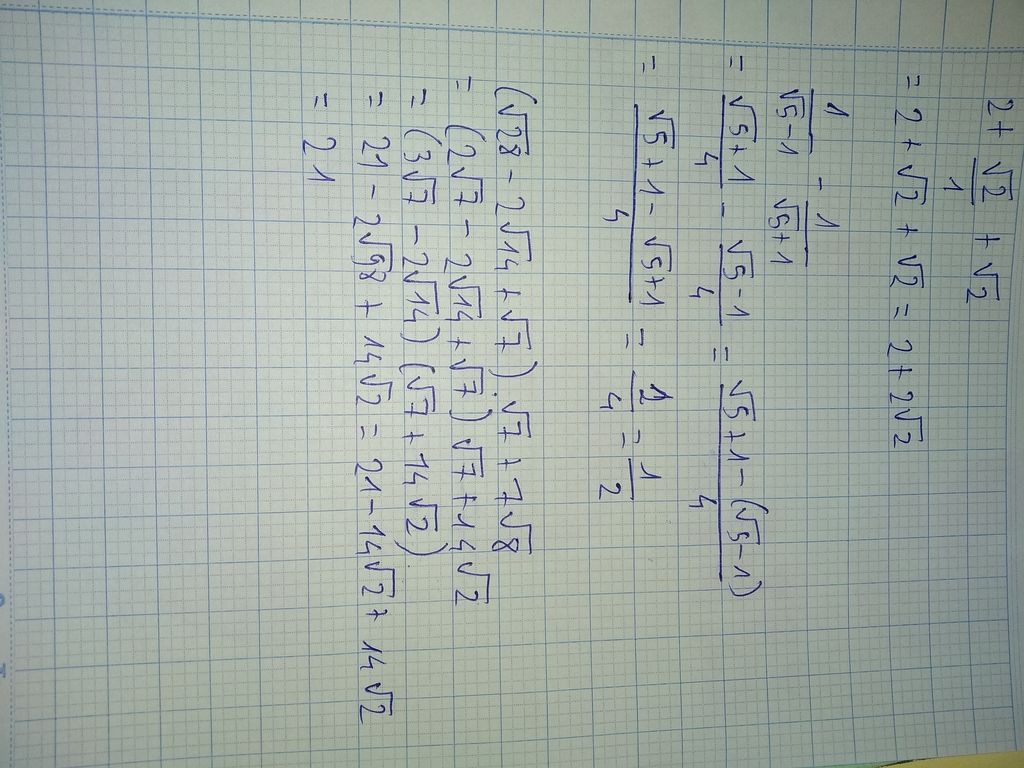 2 + √2/1 + √2
= 2 + √2 + √2 = 2 + 2√2
1/(√5-1) - 1/(√5+1)
= (√5+1)/4 - (√5-1)/4 = (√5+1-(√5-1))/4
= (√5+1-√5+1)/4 = 2/4 = 1/2
(√28 - 2√14 + √7) · √7 + 7√8
= (2√7 - 2√14 + √7) √7 + 14√2
= (3√7 - 2√14) (√7 + 14√2)
= 21 - 2√98 + 14√2 = 21 - 14√2 + 14√2
= 21